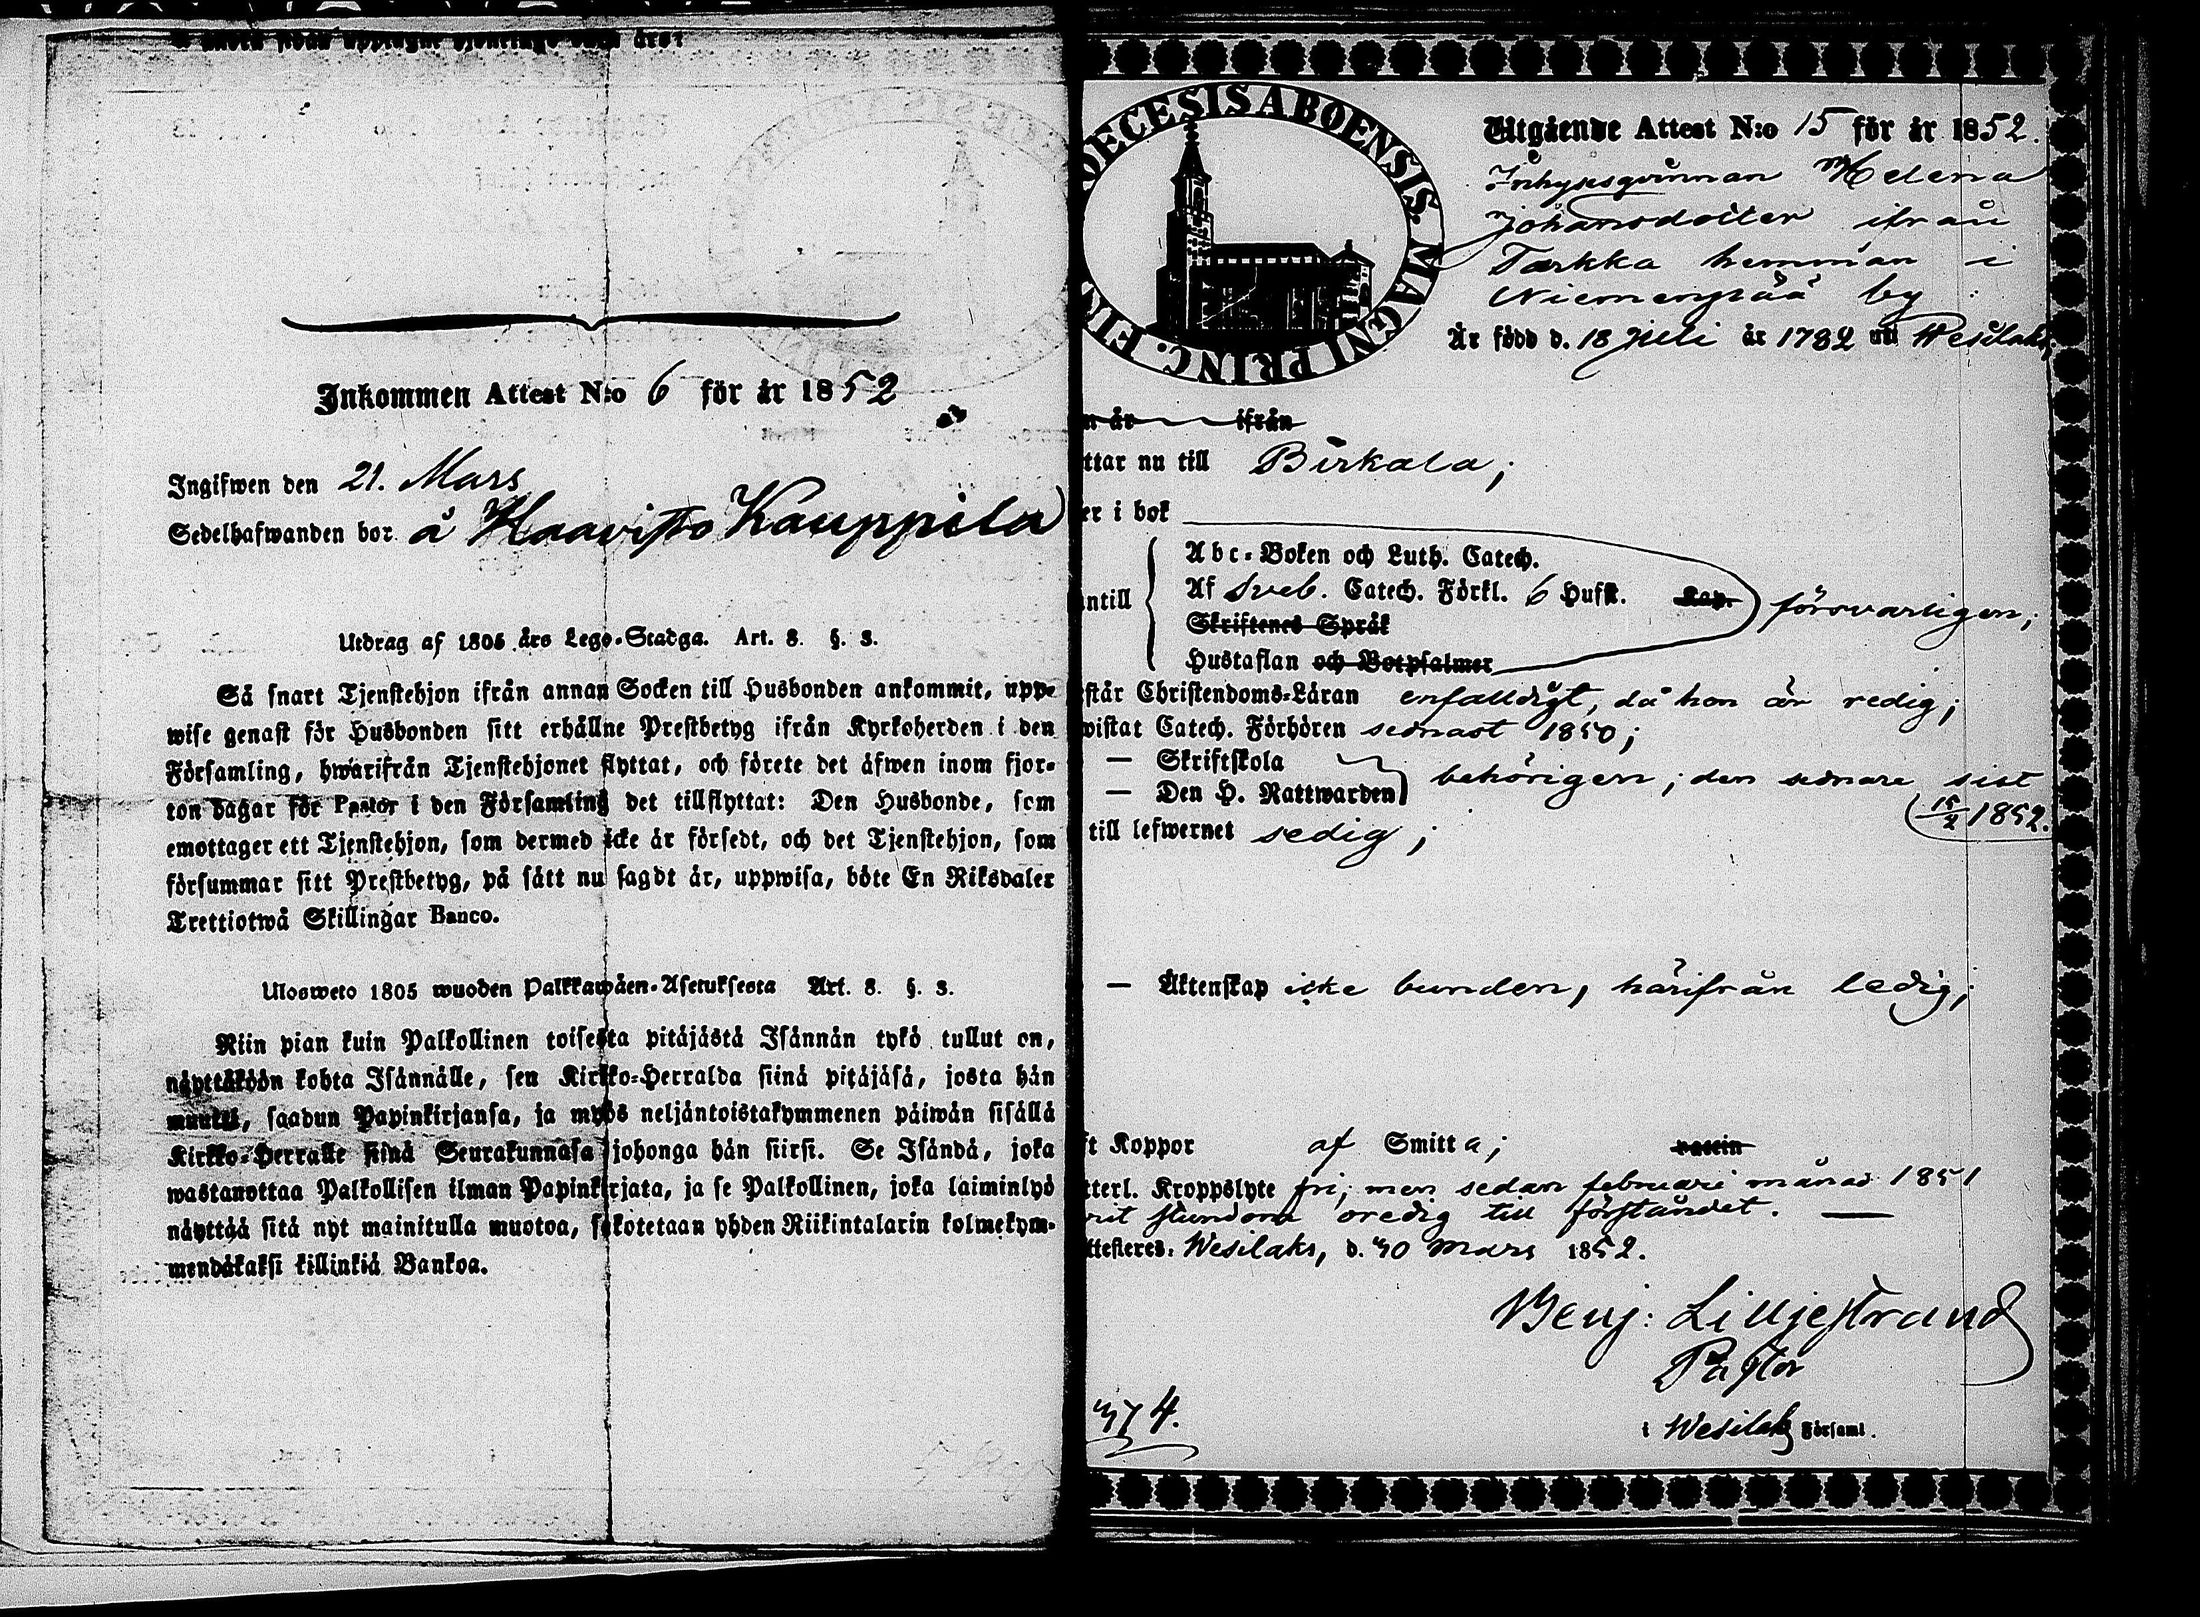 Inkommen Attest N:o 6 för år 1852
Ingifwen den 21. Mars
Sedelhafwanden bor å Haavisto Kauppila
Utdrag af 1805 års Lego-Stadga. Art. 8. §. 3.
Så snart Tjenstehjon ifrån annan Socken till Husbonden ankommit, upp-
wise genast för Husbonden sitt erhållne Prestbetyg ifrån Kyrkoherden i den
Församling, hwarifrån Tjenstehjonet flyttat, och förete det åfwen inom fjor-
ton dagar för Pastor i den Församling det tillflyttat: Den Husbonde, som
emottager ett Tjenstehjon, som dermed icke år försedt, och det Tjenstehjon, som
försummar sitt Prestbetyg, på sått nu sagdt år, uppwisa, böte En Riksdaler
Trettiotwå Skillingar Banco.
Ulosweto 1805 wuoden Palkkawäen-Asetuksesta Art. 8. §. 3.
Niin pian kuin Palkollinen toisesta pitäjästä Isännän tykö tullut on,
näyttäköön kohta Isännälle, sen Kirkko-Herralda siinä pitäjäsä, josta hän
muutti, saadun Papinkirjansa, ja myös neljäntoistakymmenen päiwän sisällä
Kirkko-Herralle siinä Seurakunnasa johonga hän siirsi. Se Isändä, joka
wastanottaa Palkollisen ilman Papinkirjata, ja se Palkollinen, joka laiminlyö
näyttää sitä nyt mainitulla muotoa, sakotetaan yhden Riikintalarin kolmekym-
mendäkaksi killinkiä Bankoa.
DECESIS ABOENSIS. MAGNI PRINC. FIN
Utgående Attest N:o 15 för år 1852.
Inhysesqvinnan Helena
Johansdotter ifrån
Tarkka hemman i
Niemenpää by
Är född d. 18 Juli år 1782 uti Wesilaks,
n år ifrån
ttar nu till Birkala;
er i bok
Abc-Boken och Luth. Catech.
antill Af Sveb. Catech. Förkl. 6 Hufst. Kap. försvarligen;
Skriftenes Språk
Hustaflan och Botpsalmer
står Christendoms-Läran enfaldigt, då hon är redig;
wistat Catech. Förhören sednast 1850;
— Skriftskola
— Den H. Nattwarden behörigen; den sednare sist
15/2 1852.
till lefwernet sedig;
— Äktenskap icke bunden, härifrån ledig;
ft Koppor af Smitta; vaccin
tterl. Kroppslyte fri; men sedan februari månad 1851
rit stundom oredig till förståndet. —
ttesteres: Wesilaks, d. 10 Mars 1852.
Benj: Liljestrand
Pastor
i Wesilaks Församl.
374.